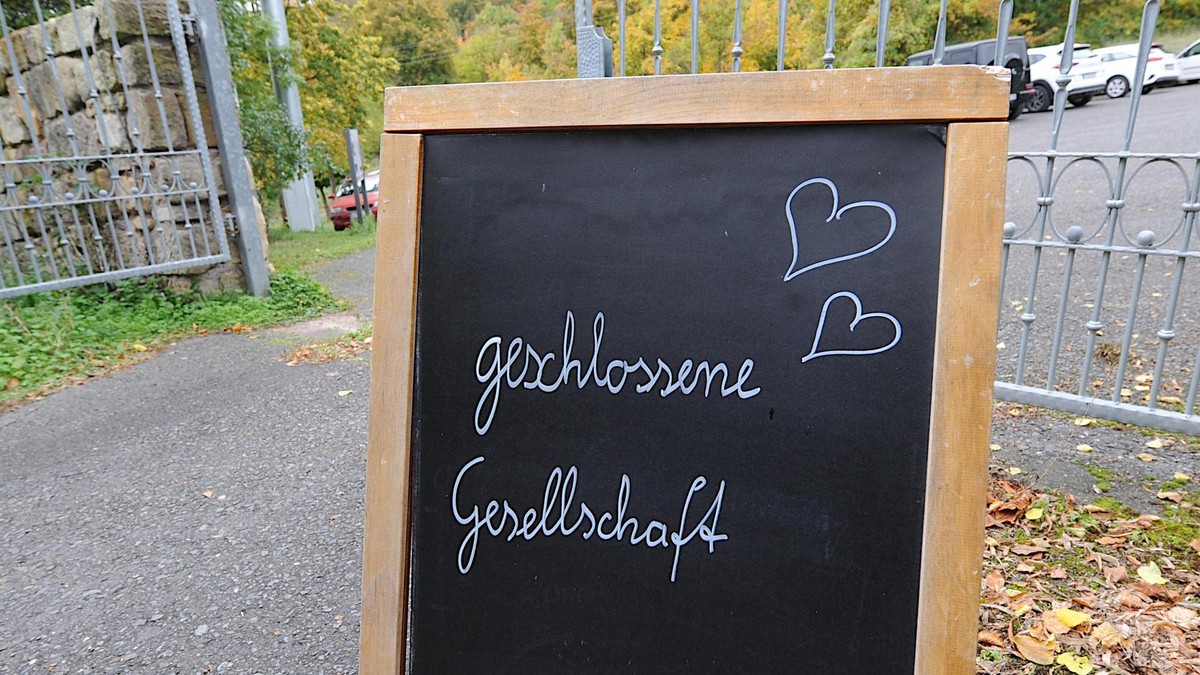 geschlossene
Gesellschaft